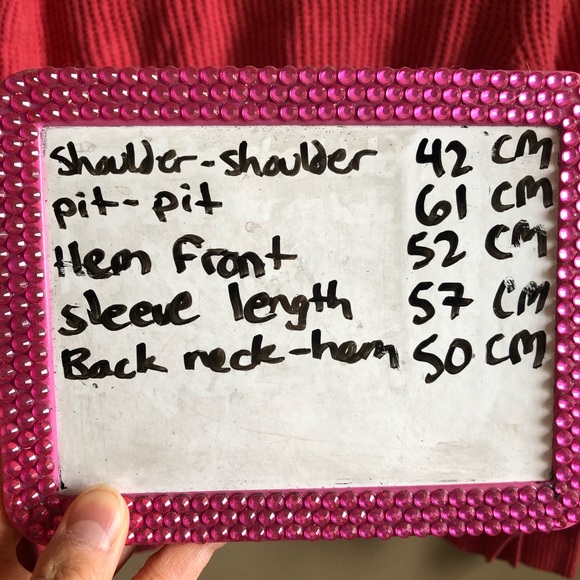 Shoulder-shoulder 42 CM
pit-pit 61 CM
Hem Front 52 CM
sleeve length 57 CM
Back neck-hem 50 CM